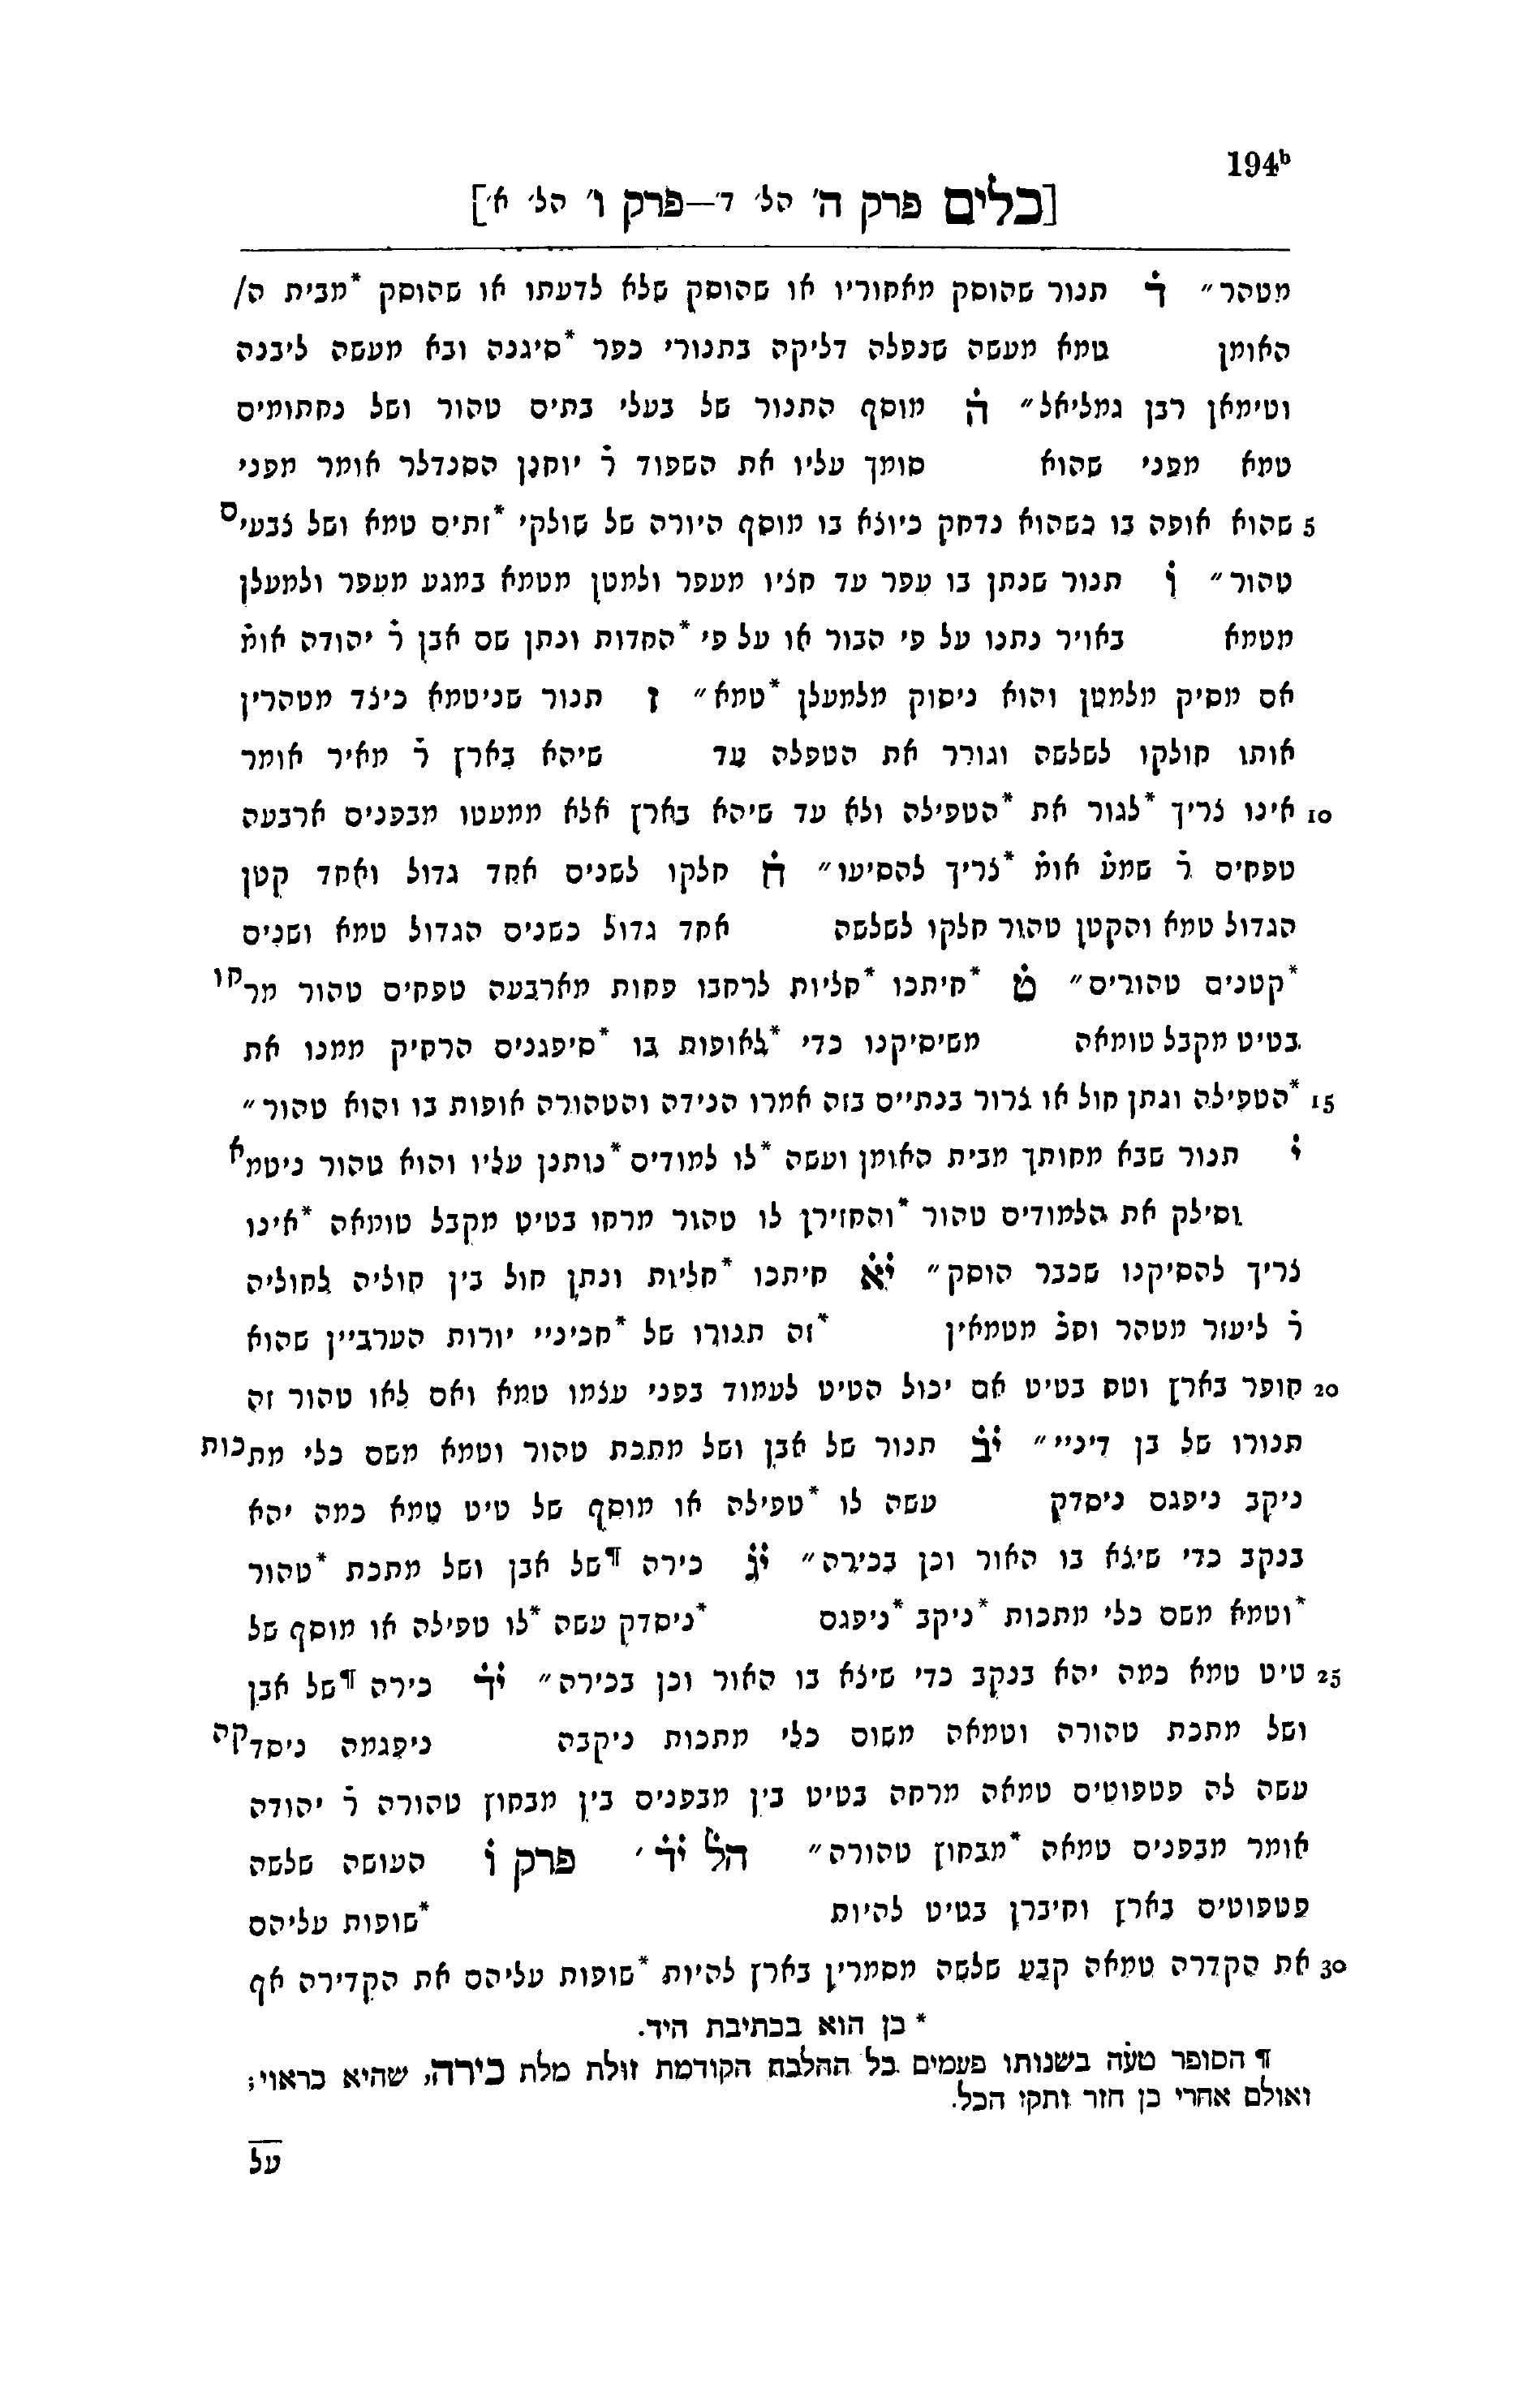 194ᵇ
[כלים פרק ה' הל' ד'—פרק ו' הל' א']
מטהר״ ד̇ תנור שהוסק מאחוריו או שהוסק שלא לדעתו או שהוסק *מבית ה/
האומן טמא מעשה שנפלה דליקה בתנורי כפר *סיגנה ובא מעשה ליבנה
וטימאן רבן גמליאל״ ה̇ מוסף התנור של בעלי בתים טהור ושל נחתומים
טמא מפני שהוא סומך עליו את השפוד ר̇ יוחנן הסנדלר אומר מפני
5 שהוא אופה בו כשהוא נדחק כיוצא בו מוסף היורה של שולקי *זתים טמא ושל צבעים
טהור״ ו̇ תנור שנתן בו עפר עד חציו מעפר ולמטן מטמא במגע מעפר ולמעלן
מטמא באויר נתנו על פי הבור או על פי *החדות ונתן שם אבן ר̇ יהודה אומ̇
אם מסיק מלמטן והוא ניסוק מלמעלן *טמא״ ז̇ תנור שניטמא כיצד מטהרין
אותו חולקו לשלשה וגורר את הטפלה עד שיהא בארץ ר̇ מאיר אומר
10 אינו צריך *לגור את *הטפילה ולא עד שיהא בארץ אלא ממעטו מבפנים ארבעה
טפחים ר̇ שמע̇ אומ̇ *צריך להסיעו״ ח̇ חלקו לשנים אחד גדול ואחד קטן
הגדול טמא והקטן טהור חלקו לשלשה אחד גדול כשנים הגדול טמא ושנים
*קטנים טהורים״ ט̇ *חיתכו *חליות לרחבו פחות מארבעה טפחים טהור מרחו
בטיט מקבל טומאה משיסיקנו כדי *לאופות בו *סיפגנים הרחיק ממנו את
15 *הטפילה ונתן חול או צרור בנתיים בזה אמרו הנידה והטהורה אופות בו והוא טהור״
י̇ תנור שבא מחותך מבית האומן ועשה *לו למודים *נותנן עליו והוא טהור ניטמא
וסילק את הלמודים טהור *והחזירן לו טהור מרחו בטיט מקבל טומאה *אינו
צריך להסיקנו שכבר הוסק״ י̇א̇ חיתכו *חליות ונתן חול בין חוליה לחוליה
ר̇ ליעזר מטהר וחכ̇ מטמאין *זה תנורו של *חכיניי יורות הערביין שהוא
20 חופר בארץ וטח בטיט אם יכול הטיט לעמוד בפני עצמו טמא ואם לאו טהור זה
תנורו של בן דיניי״ י̇ב̇ תנור של אבן ושל מתכת טהור וטמא משם כלי מתכות
ניקב ניפגם ניסדק עשה לו *טפילה או מוסף של טיט טמא כמה יהא
בנקב כדי שיצא בו האור וכן בכירה״ י̇ג̇ כירה ¶של אבן ושל מתכת *טהור
*וטמא משם כלי מתכות *ניקב *ניפגם *ניסדק עשה *לו טפילה או מוסף של
25 טיט טמא כמה יהא בנקב כדי שיצא בו האור וכן בכירה״ י̇ד̇ כירה ¶של אבן
ושל מתכת טהורה וטמאה משום כלי מתכות ניקבה ניפגמה ניסדקה
עשה לה פטפוטים טמאה מרחה בטיט בין מבפנים בין מבחוץ טהורה ר̇ יהודה
אומר מבפנים טמאה *מבחוץ טהורה״ הל̇ י̇ד̇ ׳ פרק ו̇ העושה שלשה
פטפוטים בארץ וחיברן בטיט להיות *שופות עליהם
30 את הקדרה טמאה קבע שלשה מסמרין בארץ להיות *שופות עליהם את הקדירה אף
* כן הוא בכתיבת היד.
¶ הסופר טעה בשנותו פעמים כל ההלכה הקודמת זולת מלת כירה, שהיא כראוי;
ואולם אחרי כן חזר ותקן הכל.
על